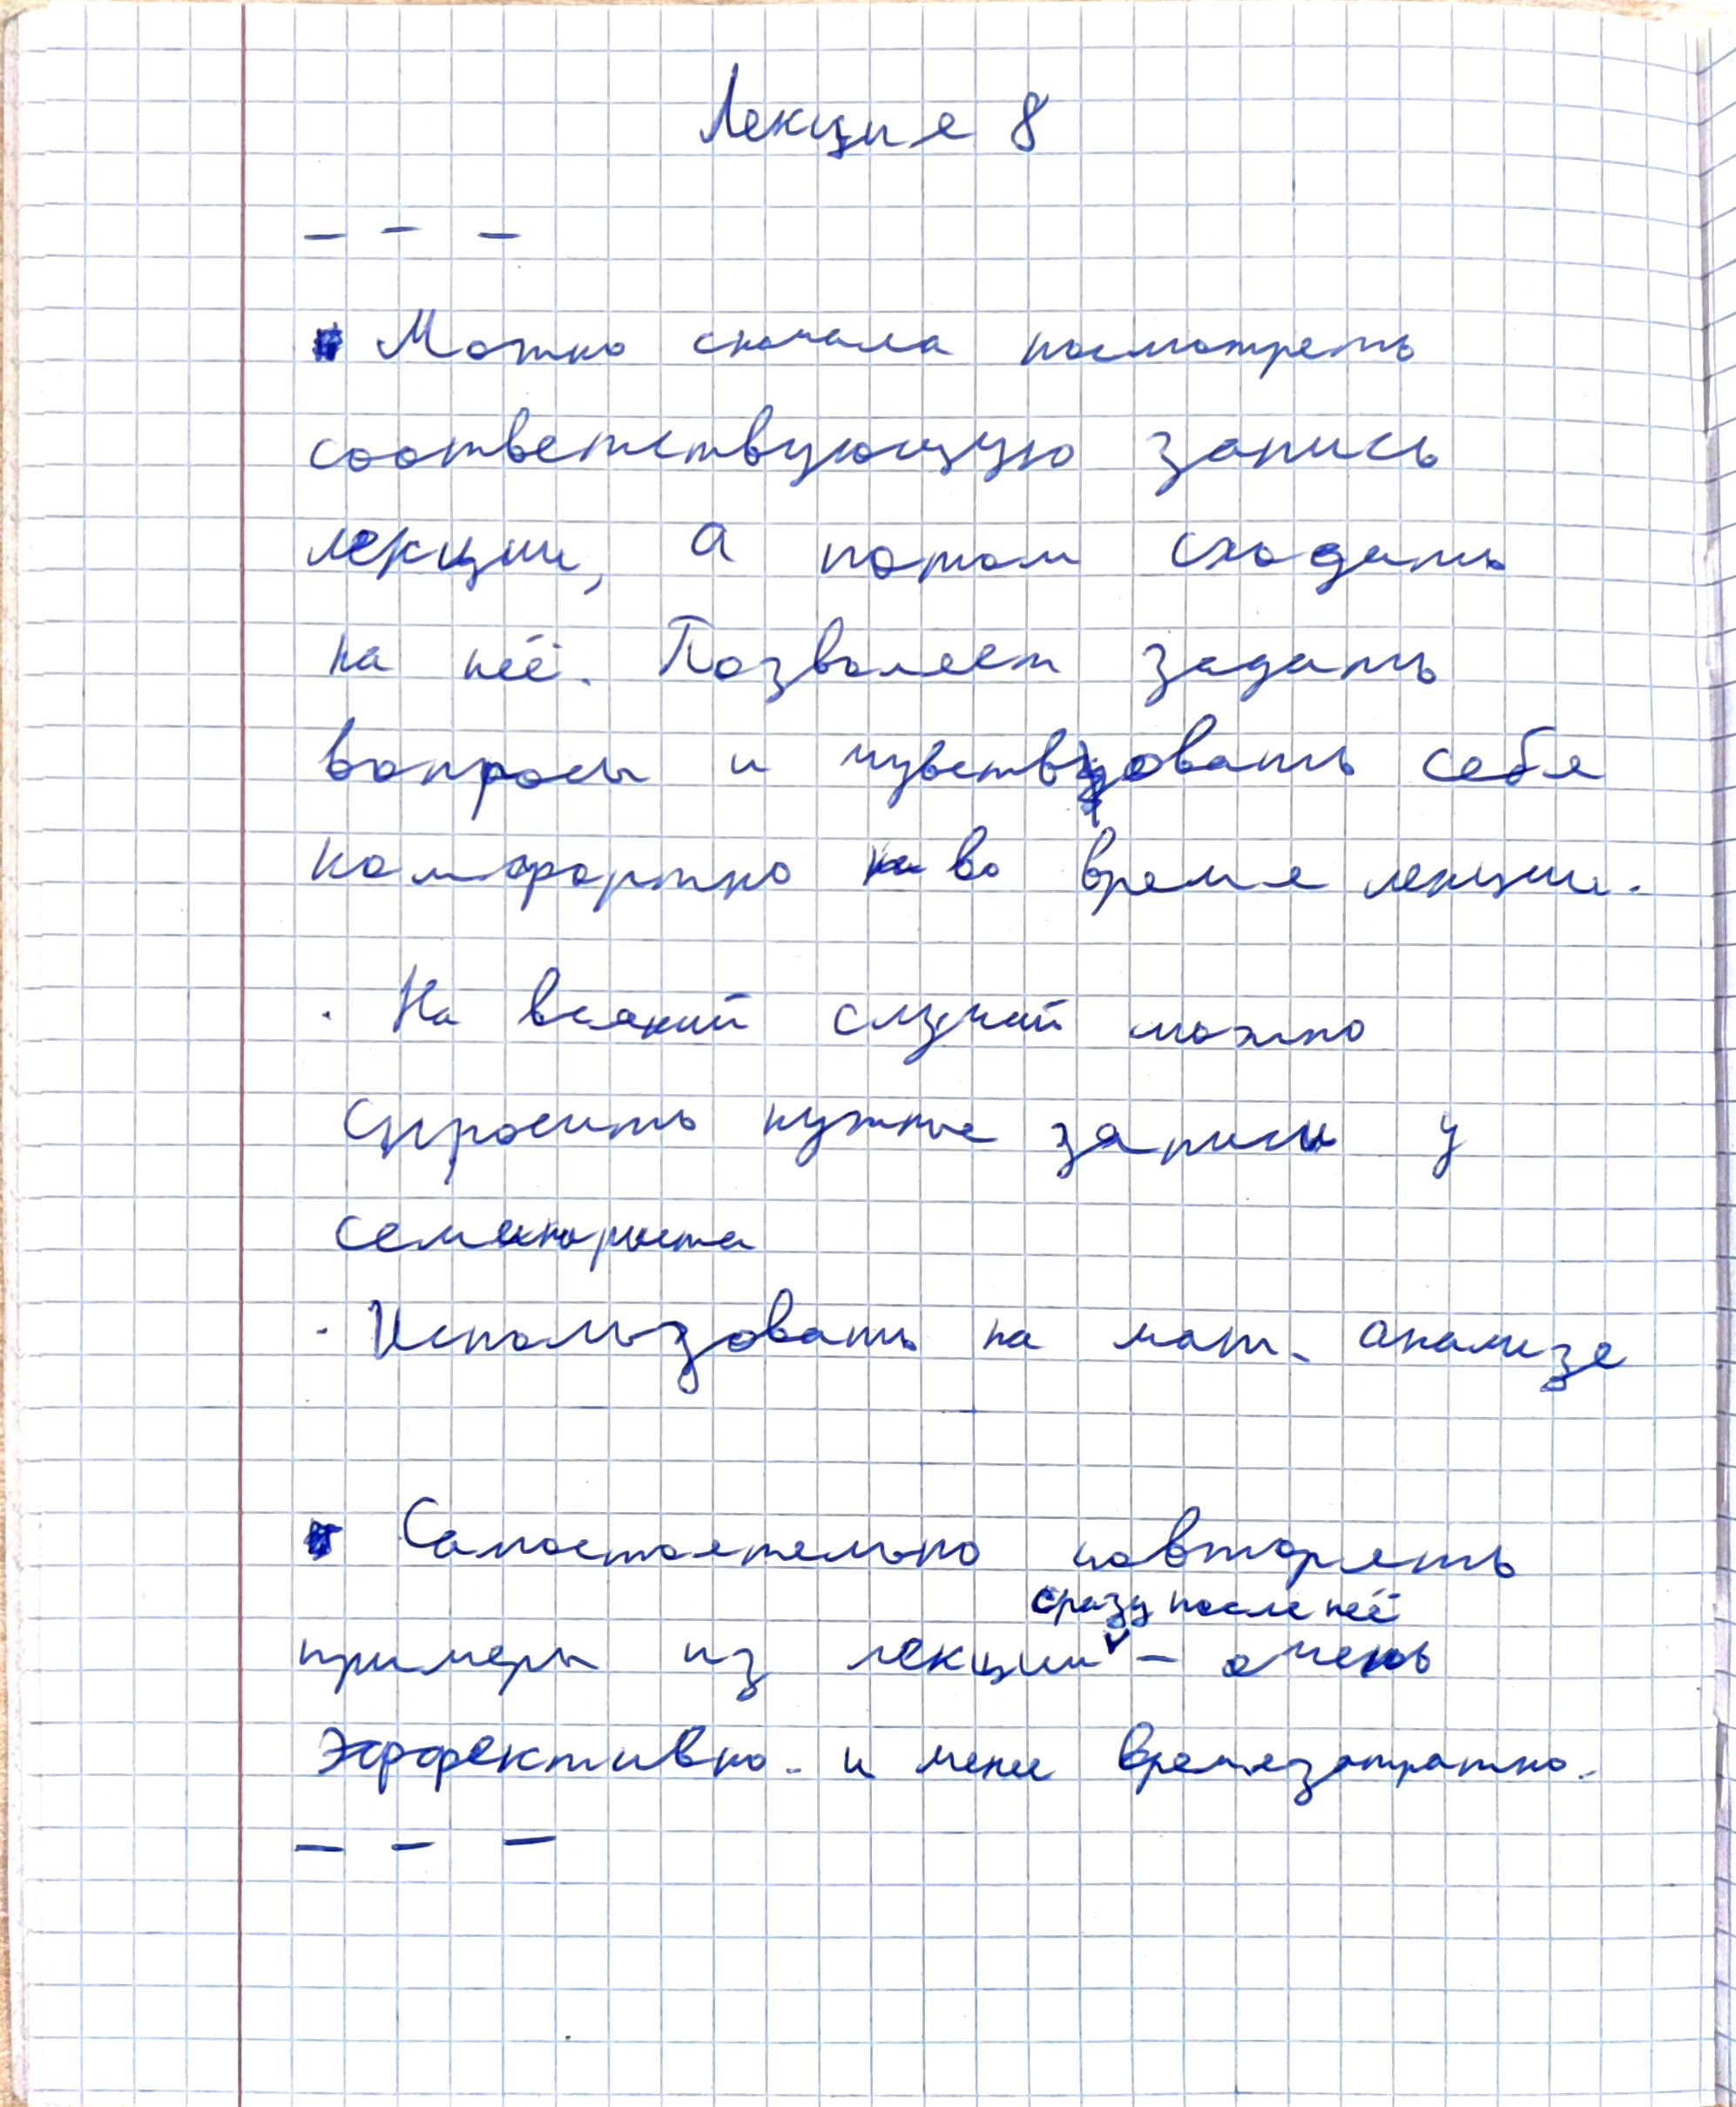 Лекция 8
– – –
Можно сначала посмотреть
соответствующую запись
лекции, а потом сходить
на неё. Позволяет задать
вопросы и чувствовать себя
комфортно во время лекции.
· На всякий случай можно
спросить нужные записи у
семинариста
· Использовать на мат. анализе
Самостоятельно повторять
сразу после неё
примеры из лекции – очень
эффективно. и менее времязатратно.
– – –